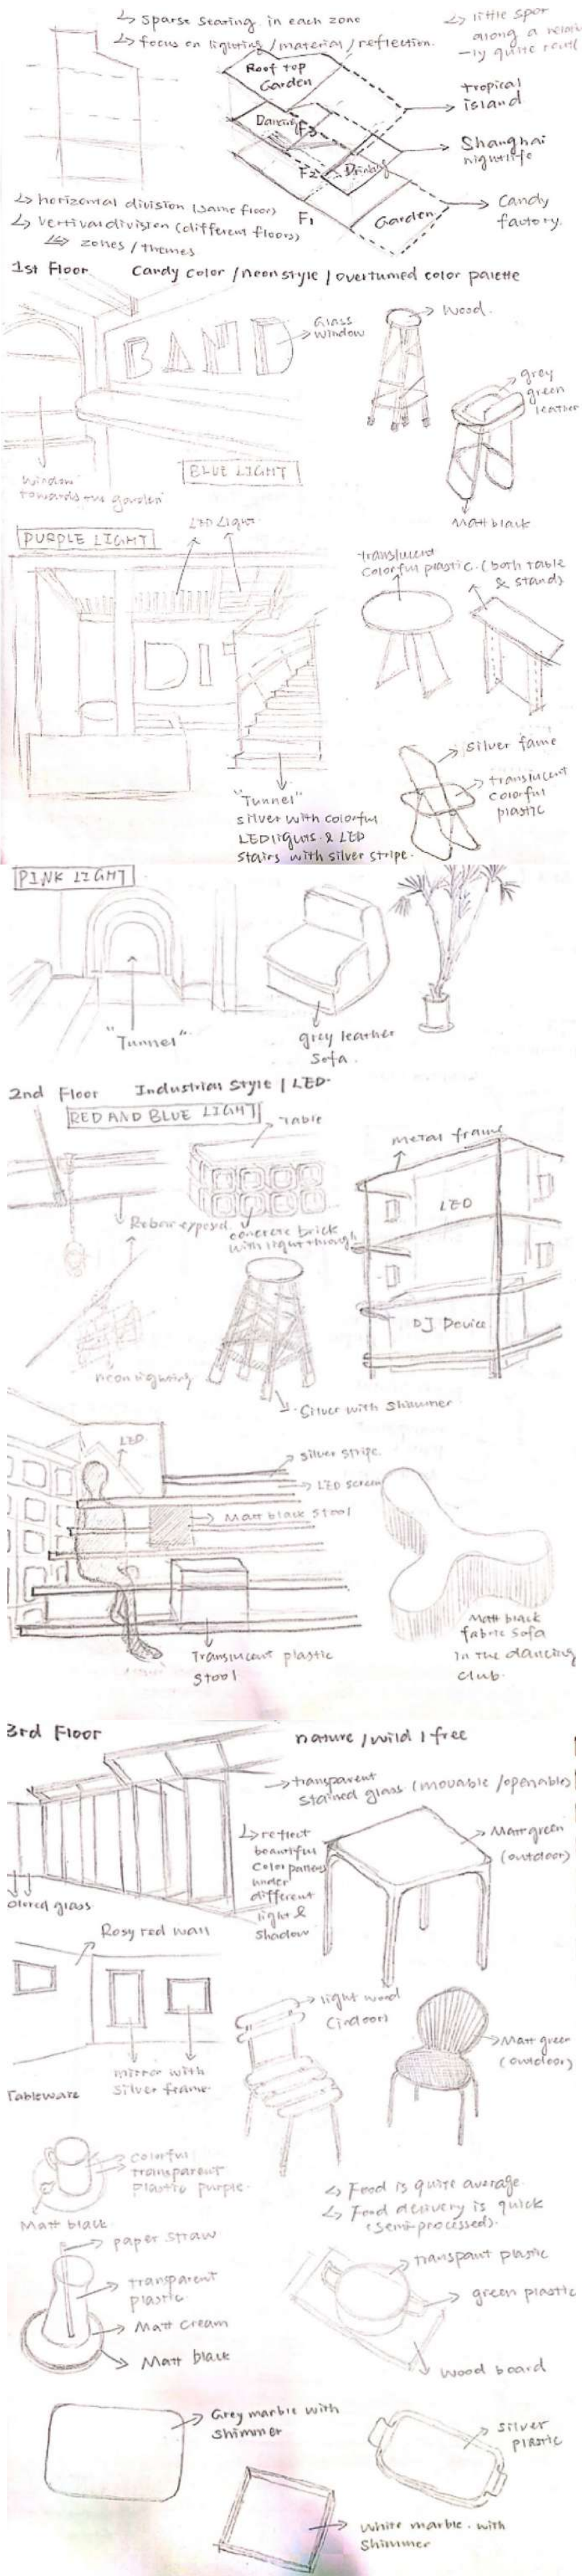 ↳ sparse seating in each zone
↳ focus on lighting / material / reflection.
↳ little spor
along a relativ
-ly quite rout
Roof top
Garden
tropical
island
Dancing
F3
Shanghai
nightlife
F2
Drinking
F1
Garden
Candy
factory.
↳ horizontal division (same floor)
↳ vertival division (different floors)
↳ zones / themes
1st Floor Candy color / neon style / overturned color palette
BAND
Glass
window
Wood.
grey
green
leather
window
towards the garden
BLUE LIGHT
Matt black
PURPLE LIGHT
LED Light
translucent
colorful plastic. (both table
& stand)
DIT
silver fame
translucent
colorful
plastic
"Tunnel"
silver with colorful
LED lights & LED
stairs with silver stripe.
PINK LIGHT
"Tunnel"
grey leather
sofa.
2nd Floor Industrial Style / LED
RED AND BLUE LIGHT
Table
metal frame
LED
Rebar exposed
concrete brick
with light through
DJ Device
neon lighting
Silver with shimmer
LED
silver stripe
LED screen
Matt black stool
Translucent plastic
stool
Matt black
fabric sofa
in the dancing
club.
3rd Floor nature / wild / free
transparent
stained glass (movable / openable)
↳ reflect
beautiful
color pattern
under
different
light &
shadow
Matt green
(outdoor)
olored glass
Rosy red wall
light wood
(indoor)
Matt green
(outdoor)
mirror with
silver frame
Tableware
colorful
transparent
plastic purple.
Matt black
↳ Food is quite average.
↳ Food delivery is quick
(semi-processed).
paper straw
transparent
plastic
Matt cream
Matt black
transpant plastic
green plastic
wood board
Grey marble with
shimmer
silver
plastic
White marble. with
shimmer